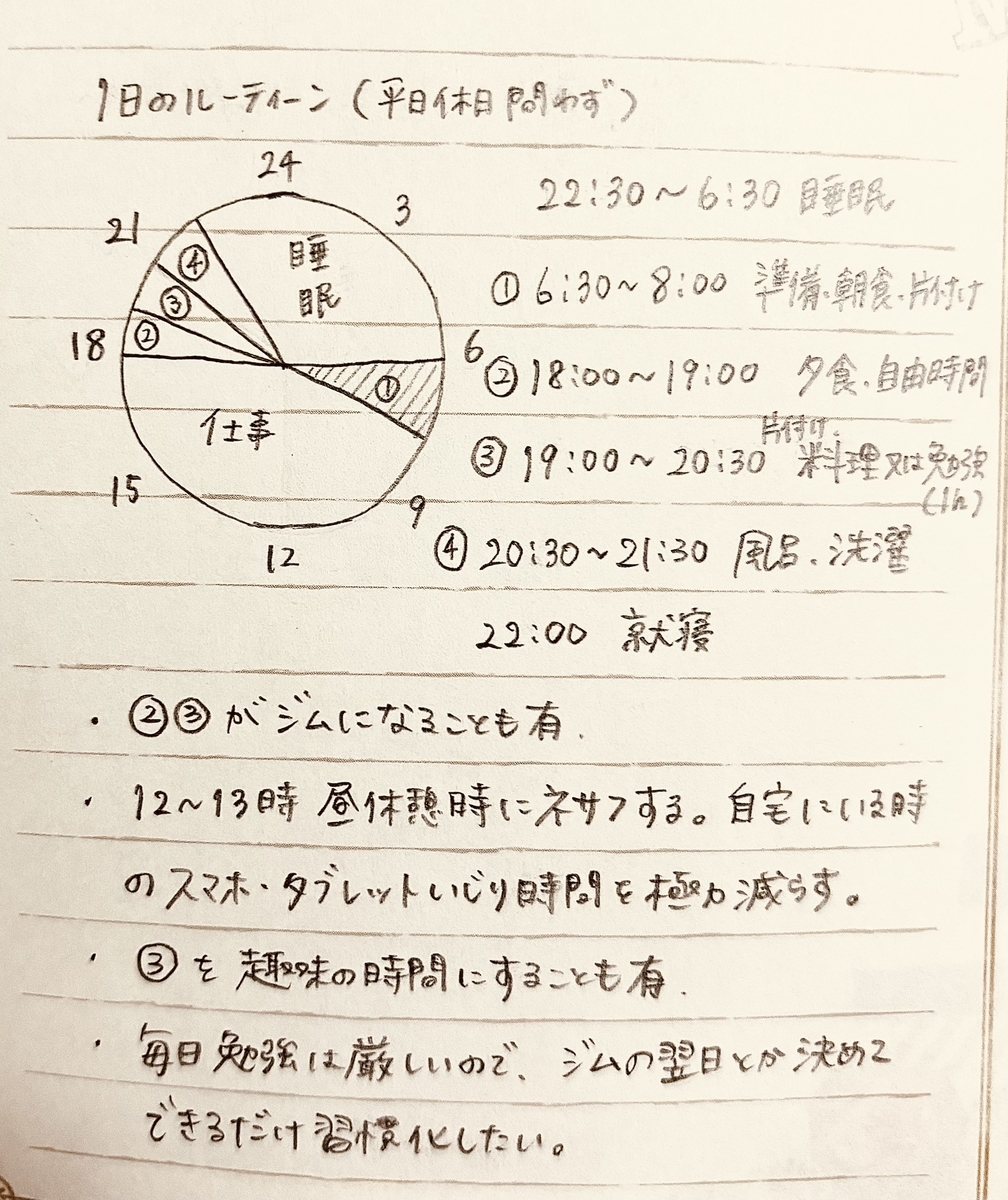 1日のルーティーン（平日休日問わず）
24
3
21
睡
眠
④
③
②
18
6
①
仕事
15
9
12
22:30～6:30 睡眠
① 6:30～8:00 準備、朝食、片付け
② 18:00～19:00 夕食、自由時間
片付け、
③ 19:00～20:30 料理又は勉強
(1h)
④ 20:30～21:30 風呂、洗濯
22:00 就寝
・②③がジムになることも有.
・12～13時 昼休憩時にネサフする。自宅にいる時
のスマホ・タブレットいじり時間を極力減らす。
・③を趣味の時間にすることも有.
・毎日勉強は厳しいので、ジムの翌日とか決めて
できるだけ習慣化したい。